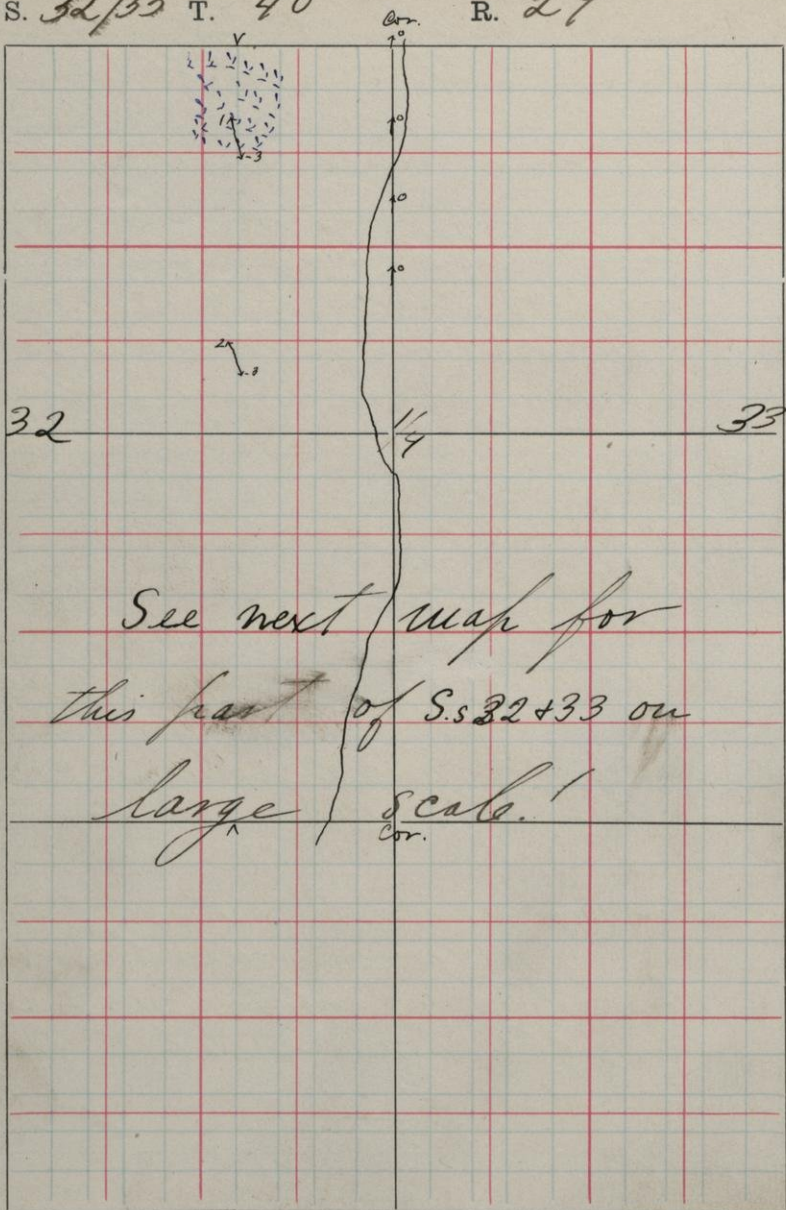 S. 32/33 T. 40 R. 27
Cor.
V
0
11
0
-3
0
0
2
-3
32 1/4 33
See next map for
this part of S.s 32 & 33 on
large scale!
^
Cor.